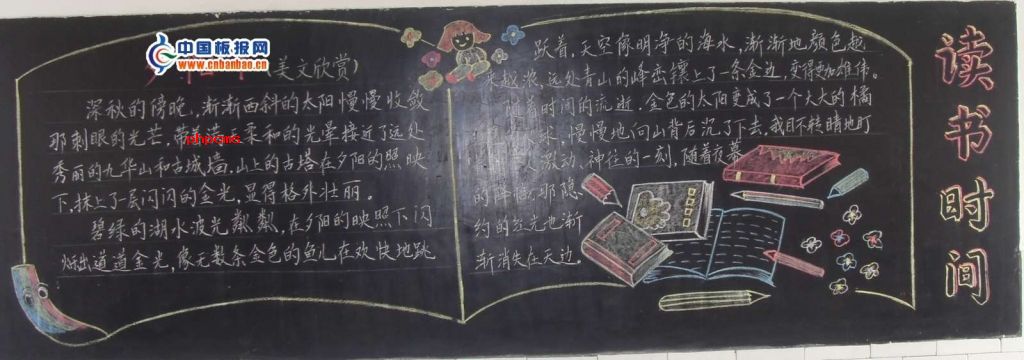 中国板报网
www.cnbanbao.cn
(美文欣赏)
深秋的傍晚,渐渐西斜的太阳慢慢收敛
那刺眼的光芒,带 柔和的光晕接近了远处
秀丽的九华山和古城墙,山上的古塔在夕阳的照映
下,抹上了层闪闪的金光,显得格外壮丽。
碧绿的湖水波光粼粼,在夕阳的映照下闪
烁出道道金光,像无数条金色的鱼儿在欢快地跳
跃着,天空像明净的海水,渐渐地颜色越
来越浓,远处青山的峰峦镶上了一条金边,变得更加雄伟。
随着时间的流逝,金色的太阳变成了一个大大的橘
球,慢慢地向山背后沉了下去,我目不转睛地盯
激动、神往的一刻,随着夜幕
的降临,那隐
约的 光也渐
渐消失在天边。
读书时间